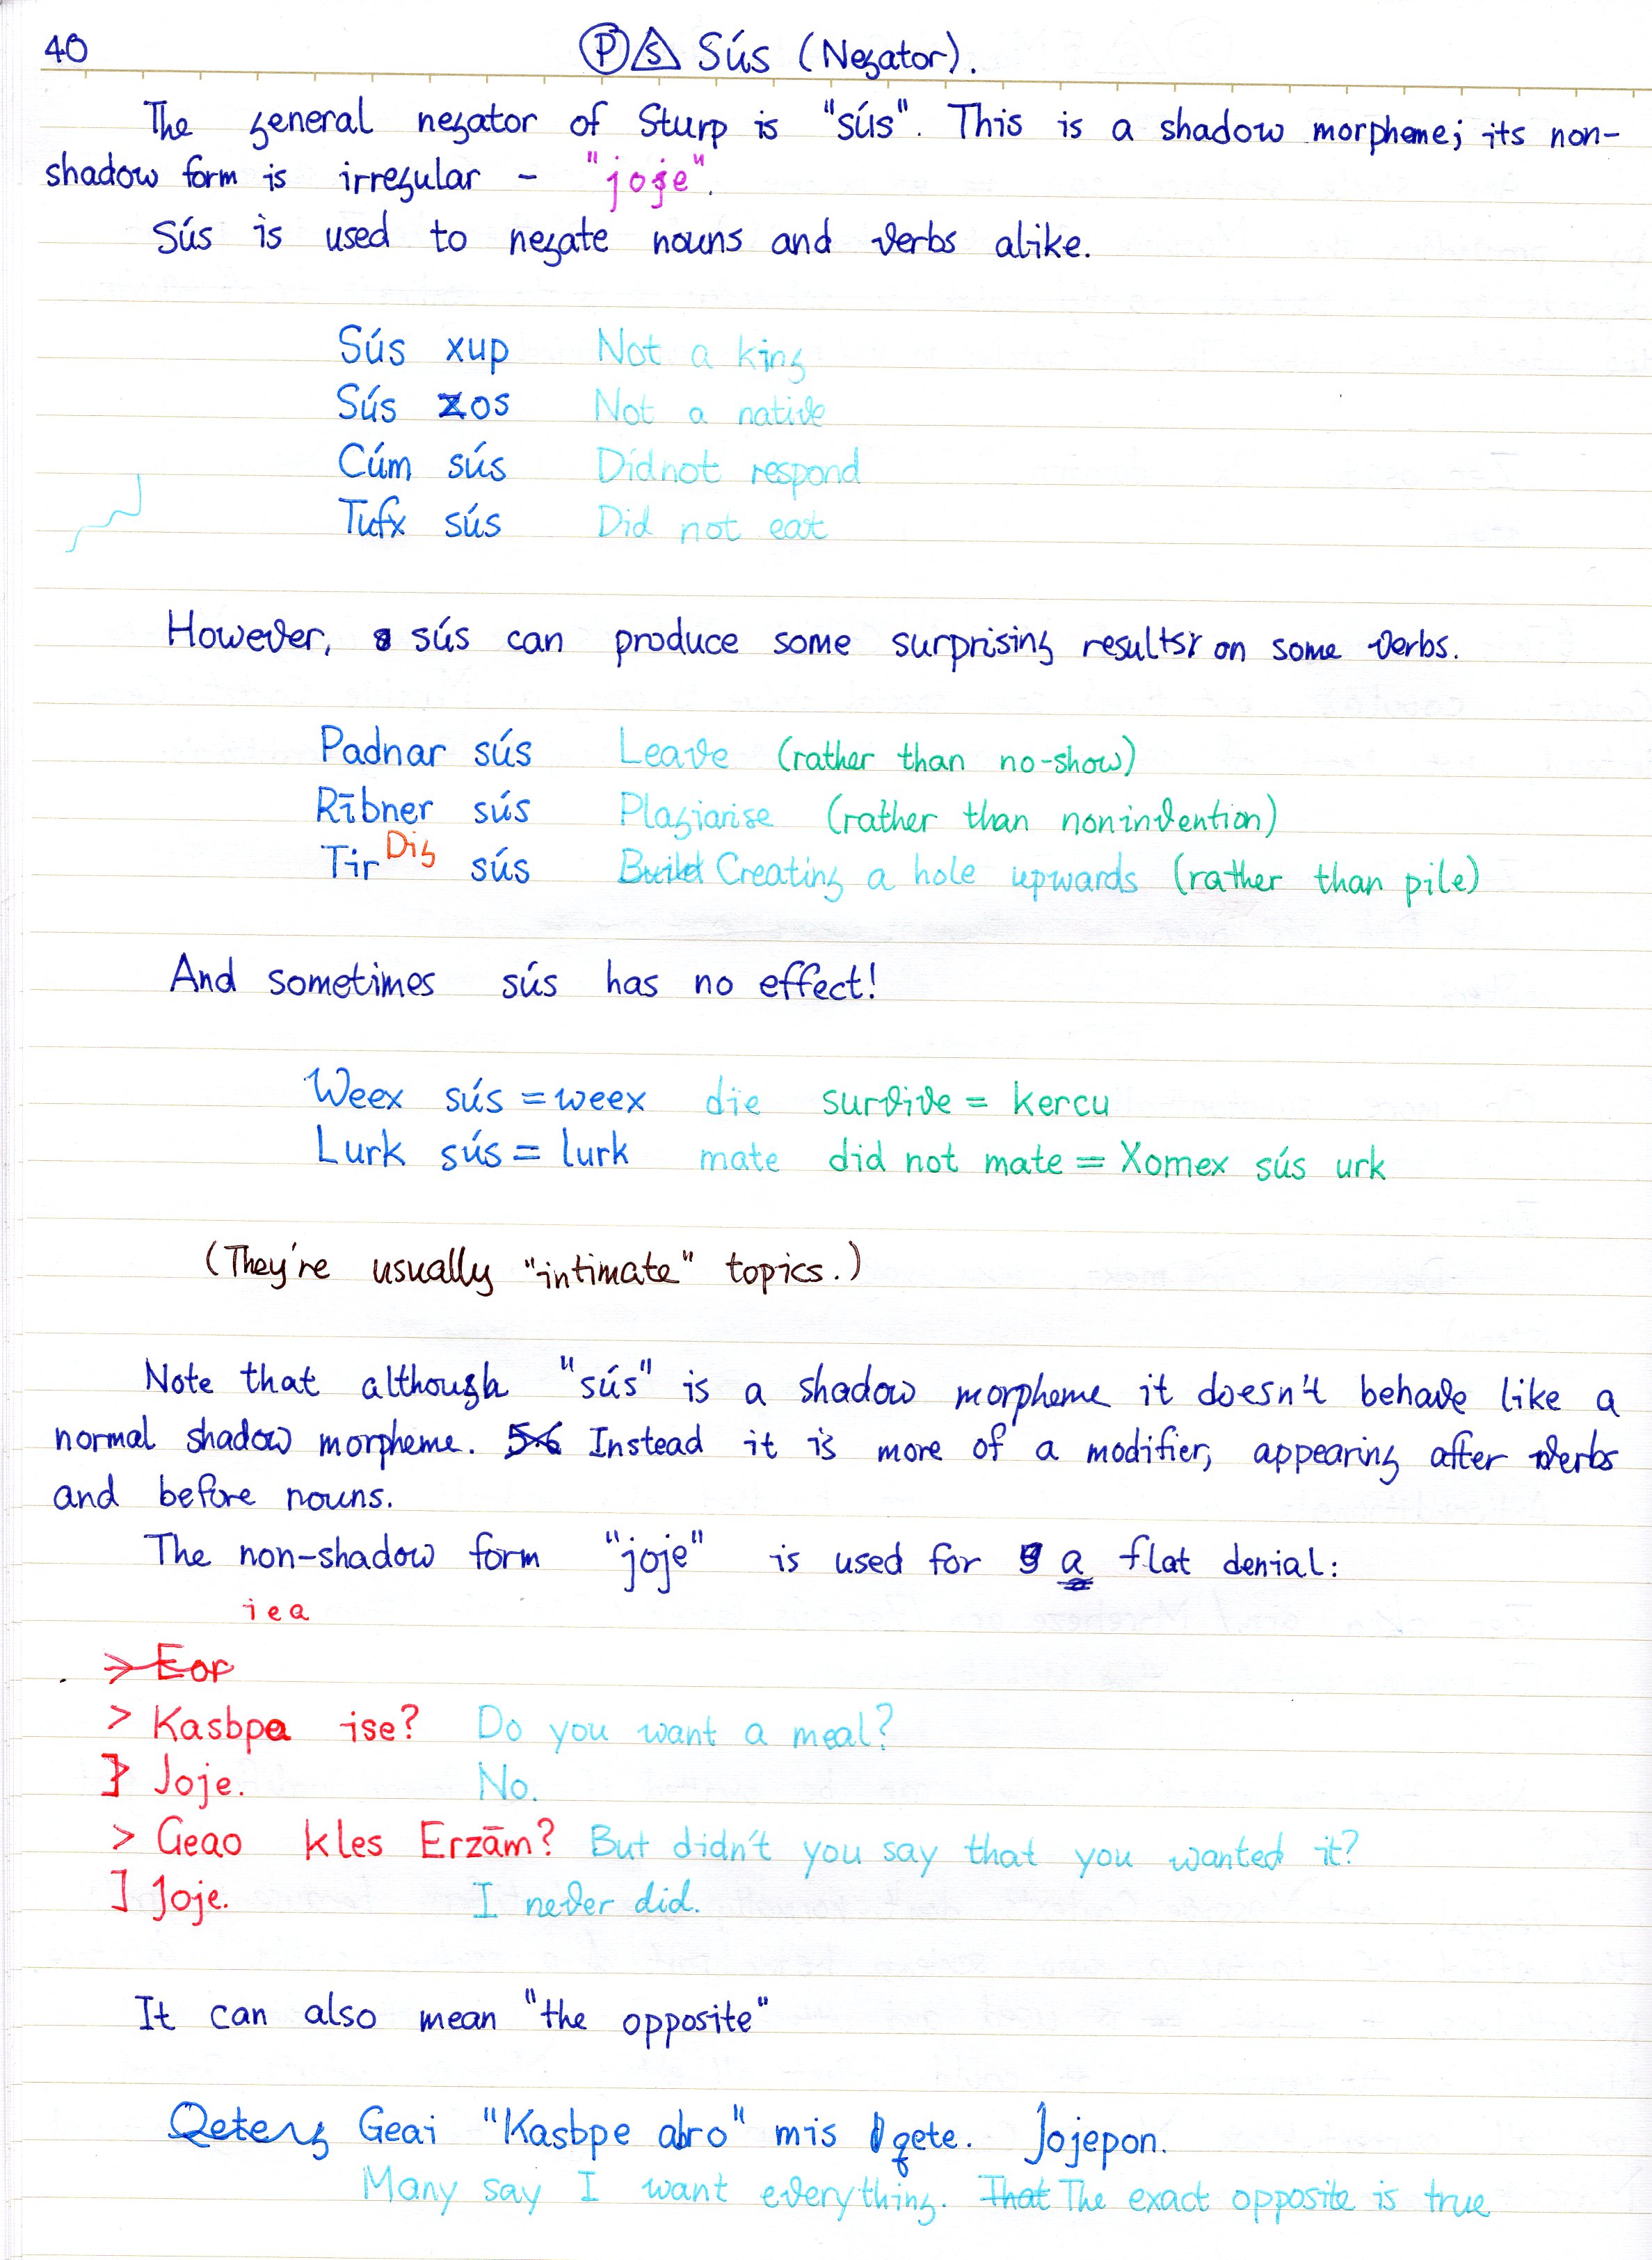 40
Ⓟ Ⓢ Sús (Negator).
The general negator of Sturp is "sús". This is a shadow morpheme; its non-
shadow form is irregular - "joje".
Sús is used to negate nouns and verbs alike.
Sús xup Not a king
Sús zos Not a native
Cúm sús Did not respond
Tufx sús Did not eat
However, sús can produce some surprising results on some verbs.
Padnar sús Leave (rather than no-show)
Rībner sús Plagiarise (rather than noninvention)
Tir Dig sús Build Creating a hole upwards (rather than pile)
And sometimes sús has no effect!
Weex sús = weex die survive = kercu
Lurk sús = lurk mate did not mate = Xomex sús urk
(They're usually "intimate" topics.)
Note that although "sús" is a shadow morpheme it doesn't behave like a
normal shadow morpheme. Instead it is more of a modifier, appearing after verbs
and before nouns.
The non-shadow form "joje" is used for a flat denial:
iea
> Eor
> Kasbpa ise? Do you want a meal?
} Joje. No.
> Geao kles Erzām? But didn't you say that you wanted it?
] Joje. I never did.
It can also mean "the opposite"
Qeteng Geai "Kasbpe abro" mis qete. Jojepon.
Many say I want everything. That The exact opposite is true